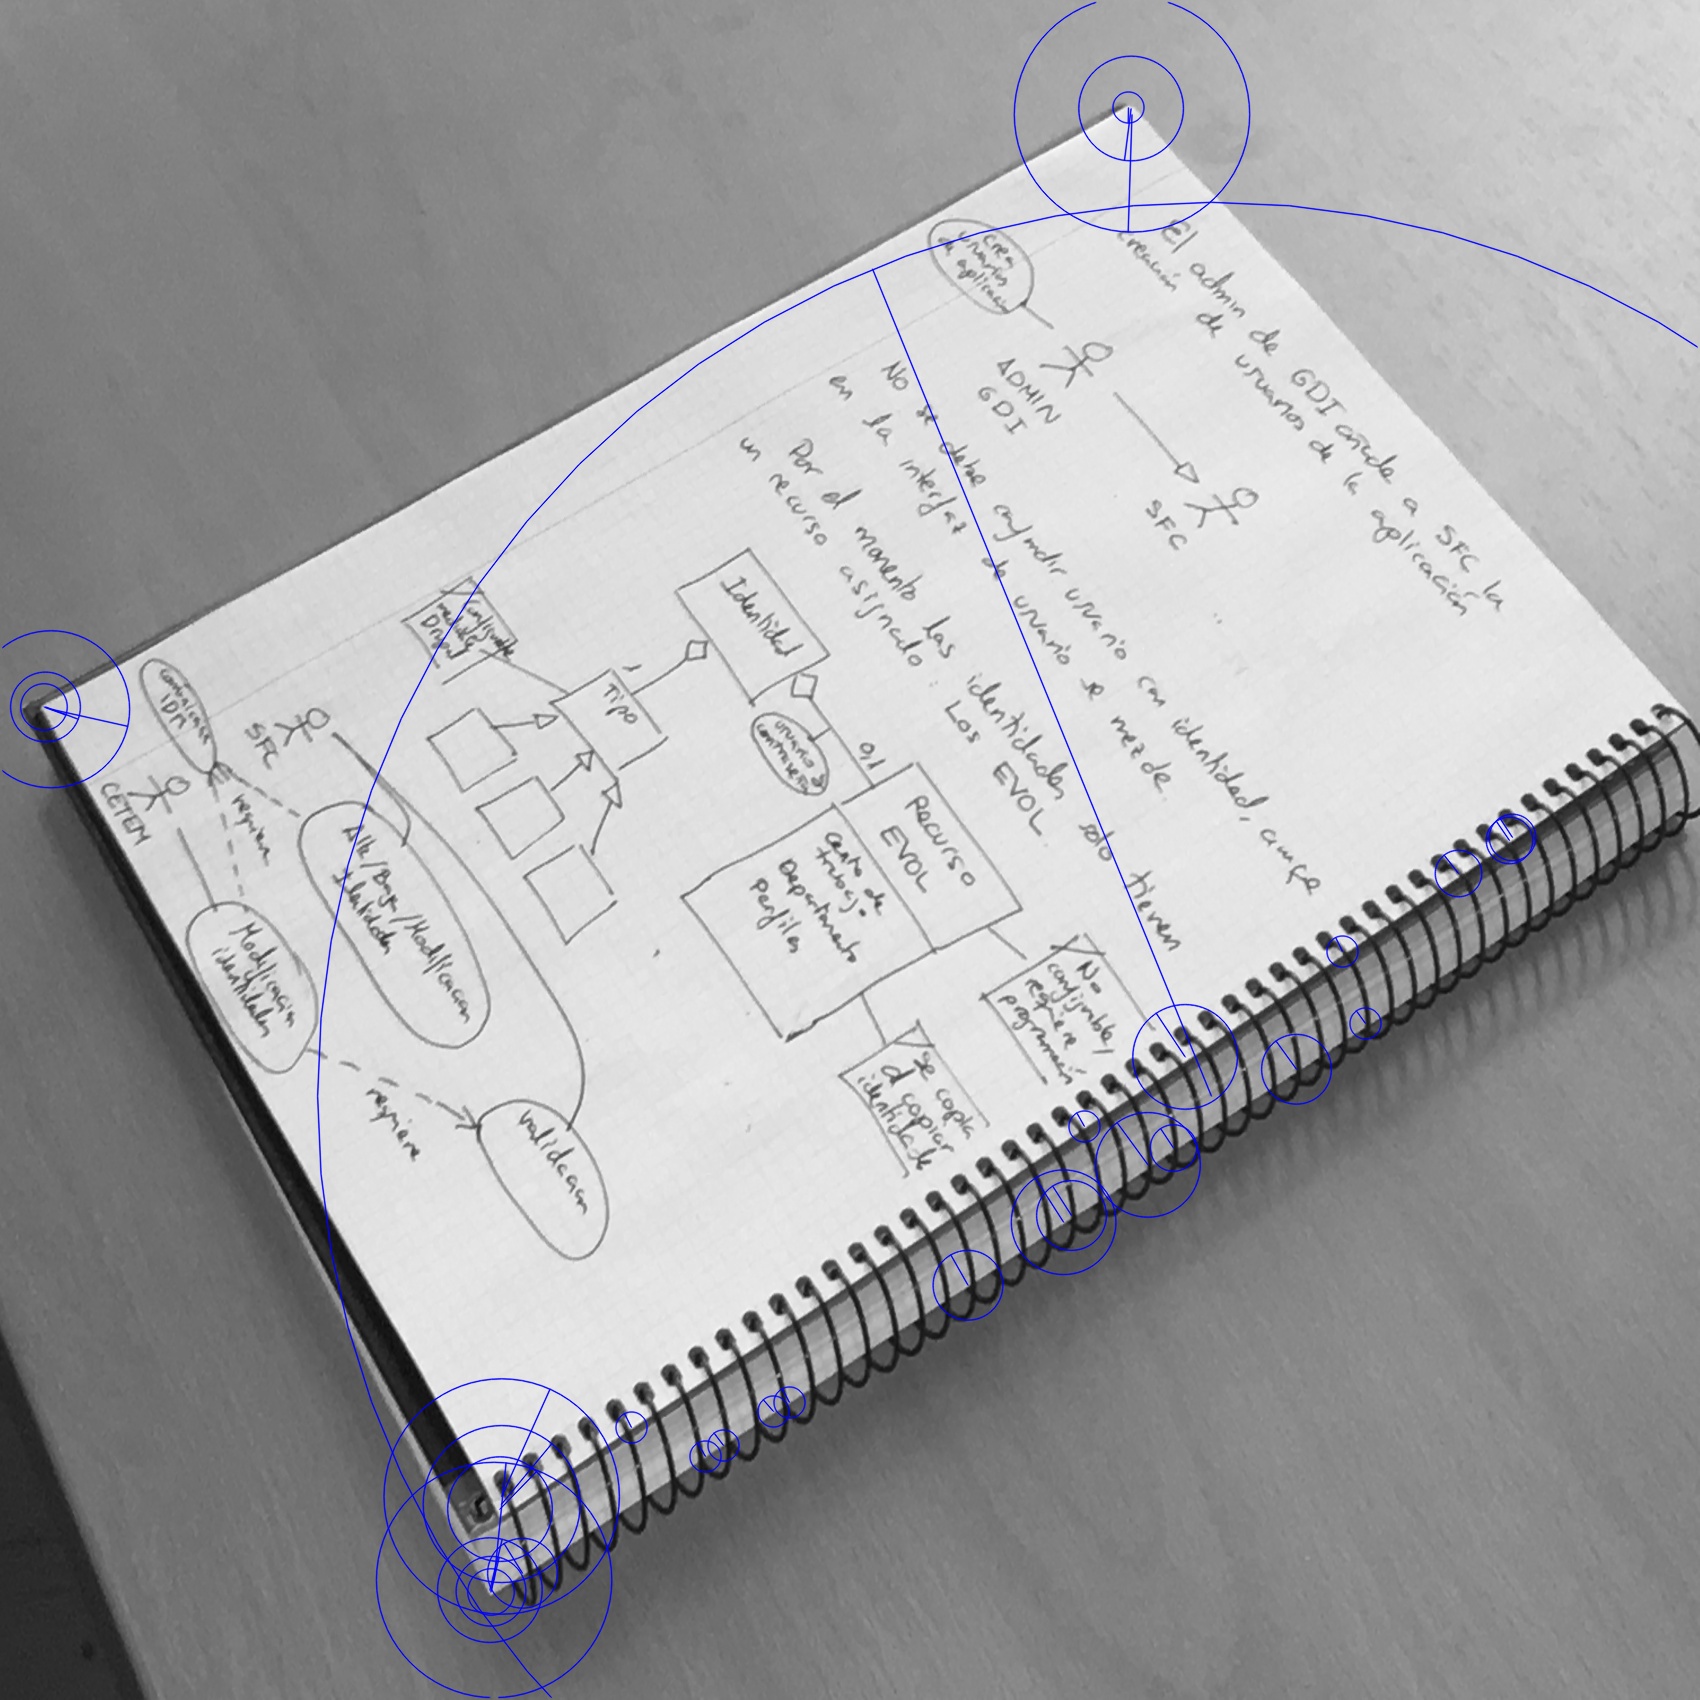 El admin de GDI añade a SFC la
creación de usuarios de la aplicación
crea
usuarios
de aplicación
ADMIN
GDI
SFC
No se debe confundir usuario con identidad, aunque
en la interfaz de usuario se mezcle.
Por el momento las identidades solo tienen
un recurso asignado: Los EVOL
Identidad
0,1
usuario y
contraseña
RECURSO
EVOL
Centro de
trabajo
Departamento
Perfiles
No
configurable,
requiere
programación
Se copia
al copiar
identidade
Tipo
1
Configurable
mediante
Drupal
SFC
CETEM
IDM
requieren
Alta/Baja/Modificacion
identidades
Modificacion
identidades
requiere
Validacion